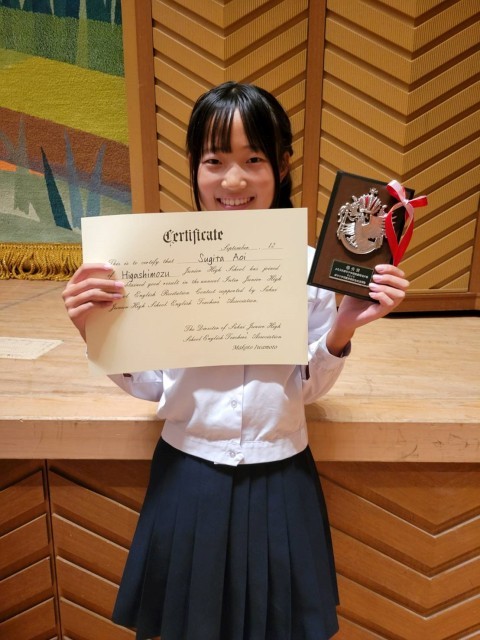 Certificate
September 12
This is to certify that Sugita Aoi
Higashimozu Junior High School has joined
and good result in the annual Intra Junior High
School English Recitation Contest supported by Sakai
Junior High School English Teachers' Association.
The Director of Sakai Junior High
School English Teachers' Association